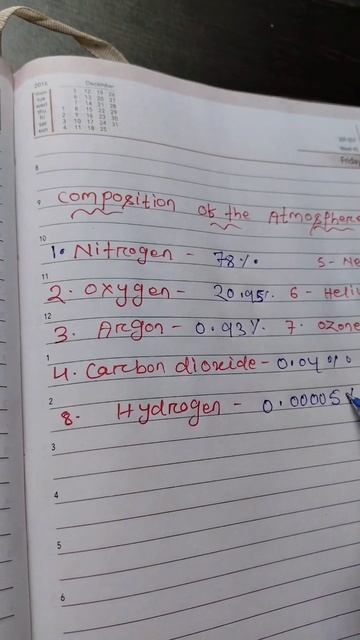 2016 December
Friday
9 Composition of the Atmosphere
10
1. Nitrogen - 78%. 5- Ne
11
2. Oxygen - 20.95%. 6 - Heliu
12
3. Argon - 0.93%. 7. Ozone
1
4. Carbon dioxide - 0.04%
2
8. Hydrogen - 0.00005%
3
4
5
6